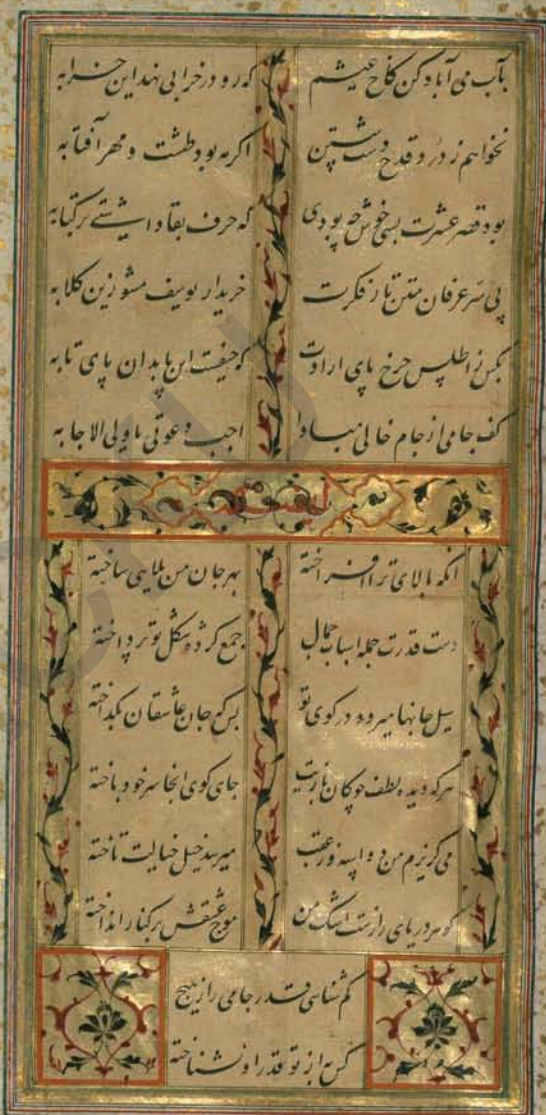 بآب می آباد کن کاخ عیشم که رو در خرابی نهد این خرابه
نخواهم ز درد و قدح دست شستن اگر مه بود طشت و مهر آفتابه
بود قصر عشرت بسی خوش چه بودی که حرف بقا داشتی بر کتابه
پی سر عرفان متن تار فکرت خریدار یوسف مشو زین کلابه
مکش ز اطلس چرخ پای ارادت که حیفست این پا بدان پای تابه
کف جامی از جام خالی مبادا اجب دعوتی یا ولی الاجابه
آنکه بالای ترا افراخته بهر جان من بلایی ساخته
دست قدرت جمله اسباب جمال جمع کرده بشکل تو پرداخته
سیل جانها میرود در کوی تو بس که جان عاشقان بگداخته
هر که دیده لطف چوگان بازیت جای گوی آنجا سر خود باخته
می گریزم من دو اسپه وز عقب میرسد خیل خیالت تاخته
گوهر دریای رازست اشک من موج عشقش بر کنار انداخته
کم شناسی قدر جامی را ز هیچ
کس به از تو قدر او نشناخته